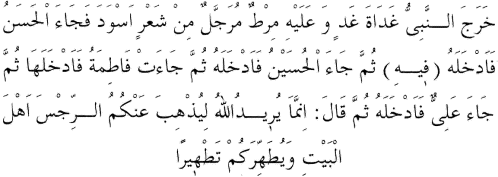 خَرَجَ النَّبِىُّ غَدَاةَ غَدٍ وَ عَلَيْهِ مِرْطٌ مُرَجَّلٌ مِنْ شَعْرٍ اَسْوَدَ فَجَاءَ الْحَسَنُ
فَادْخَلَهُ (فِيهِ) ثُمَّ جَاءَ الْحُسَيْنُ فَادْخَلَهُ ثُمَّ جَاءَت فَاطِمَةُ فَادْخَلَهَا ثُمَّ
جَاءَ عَلِىٌّ فَادْخَلَهُ ثُمَّ قَالَ: اِنَّمَا يُرِيدُ اللهُ لِيُذْهِبَ عَنْكُمُ الرِّجْسَ اَهْلَ
الْبَيْتِ وَيُطَهِّرَكُمْ تَطْهِيرًا